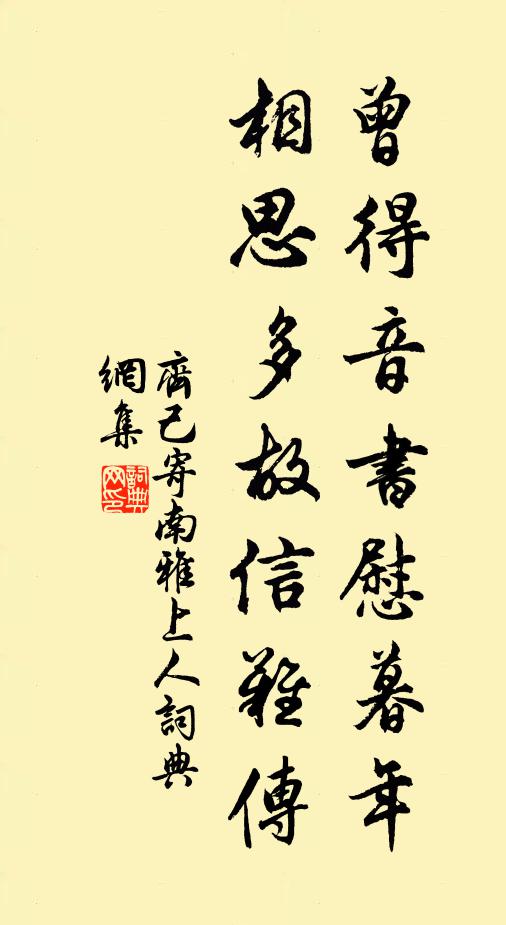 曾得音書慰暮年
相思多故信難傳
齊己寄南雅上人詞典
網集
詞典網印